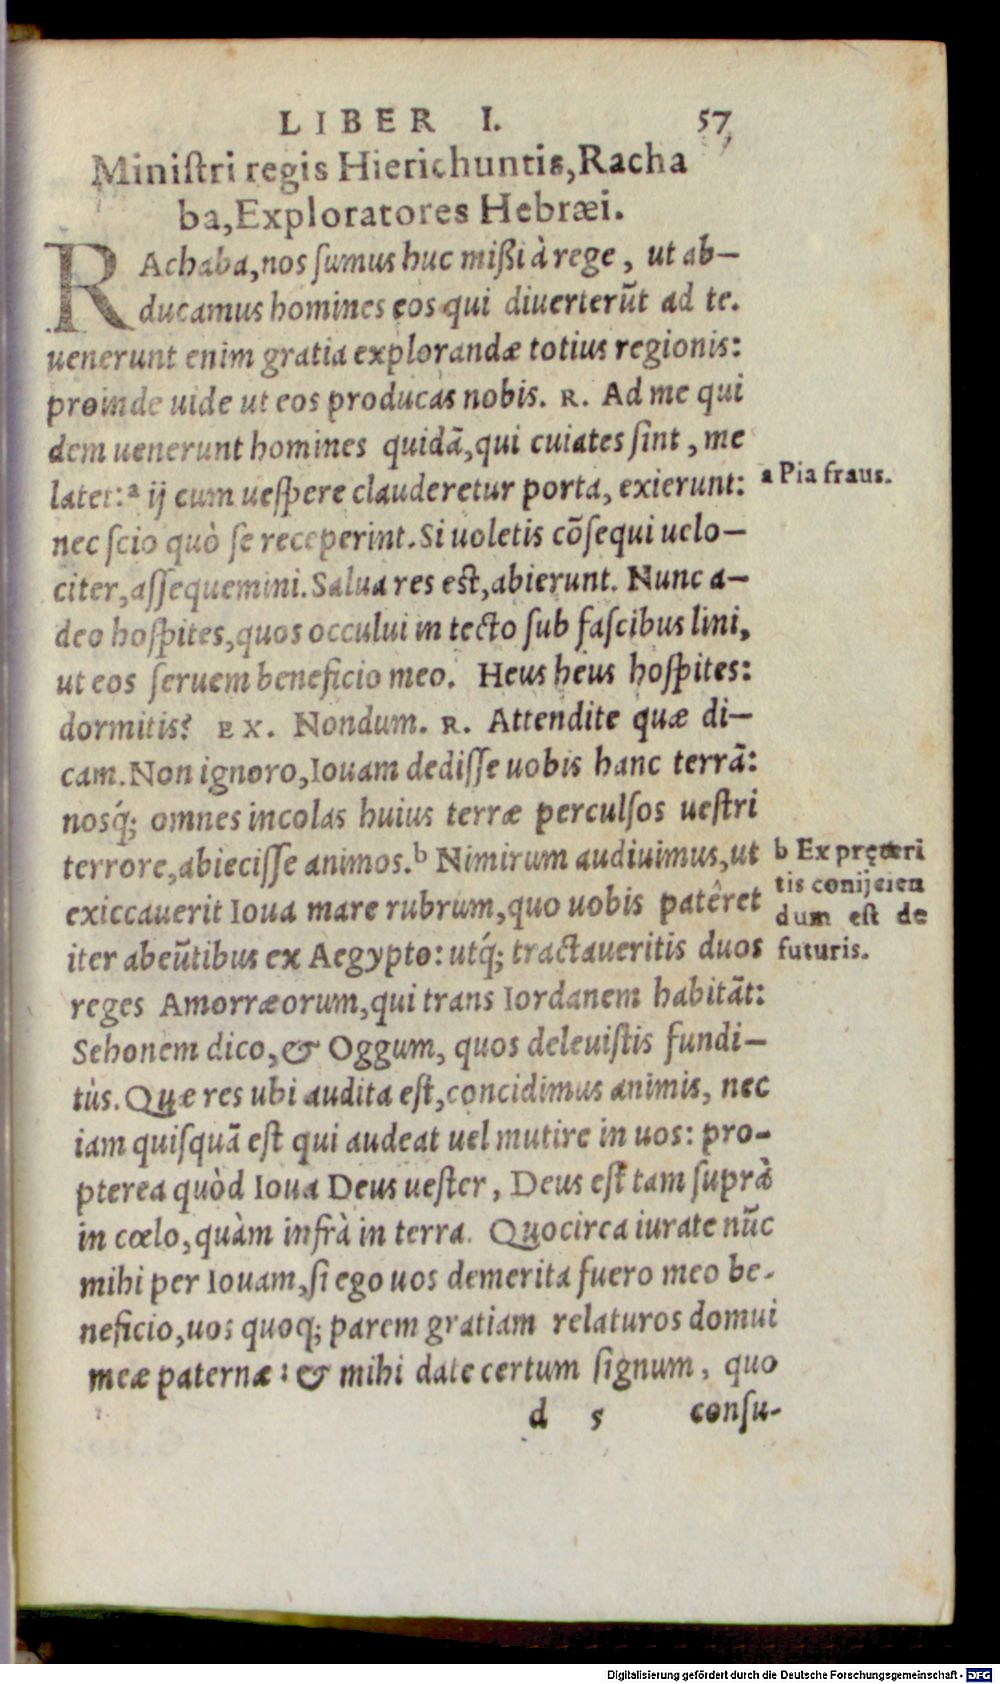 LIBER I. 57
Miniſtri regis Hierichuntis, Racha
ba, Exploratores Hebræi.
RAchaba, nos ſumus huc mißi à rege, ut ab-
ducamus homines eos qui diuerterūt ad te.
uenerunt enim gratia explorandæ totius regionis:
proinde uide ut eos producas nobis. R. Ad me qui
dem uenerunt homines quidã, qui cuiates ſint, me
latet: ª ij cum ueſpere clauderetur porta, exierunt:
a Pia fraus.
nec ſcio quò ſe receperint. Si uoletis cõſequi uelo-
citer, aſſequemini. Salua res eſt, abierunt. Nunc a-
deo hoſpites, quos occului in tecto ſub faſcibus lini,
ut eos ſeruem beneficio meo. Heus heus hoſpites:
dormitis? EX. Nondum. R. Attendite quæ di-
cam. Non ignoro, Iouam dediſſe uobis hanc terrã:
nosq́; omnes incolas huius terræ perculſos ueſtri
terrore, abieciſſe animos. ᵇ Nimirum audiuimus, ut
exiccauerit Ioua mare rubrum, quo uobis patêret
iter abeũtibus ex Aegypto: utq́; tractaueritis duos
reges Amorræorum, qui trans Iordanem habitãt:
b Ex pręteri
tis conijcien
dum eſt de
futuris.
Sehonem dico, & Oggum, quos deleuiſtis fundi-
tùs. Quæ res ubi audita eſt, concidimus animis, nec
iam quiſquã eſt qui audeat uel mutire in uos: pro-
pterea quòd Ioua Deus ueſter, Deus eſt tam ſuprà
in cœlo, quàm infrà in terra. Quocirca iurate nũc
mihi per Iouam, ſi ego uos demerita fuero meo be-
neficio, uos quoq; parem gratiam relaturos domui
meæ paternæ: & mihi date certum ſignum, quo
d 5 conſu-
Digitalisierung gefördert durch die Deutsche Forschungsgemeinschaft - DFG